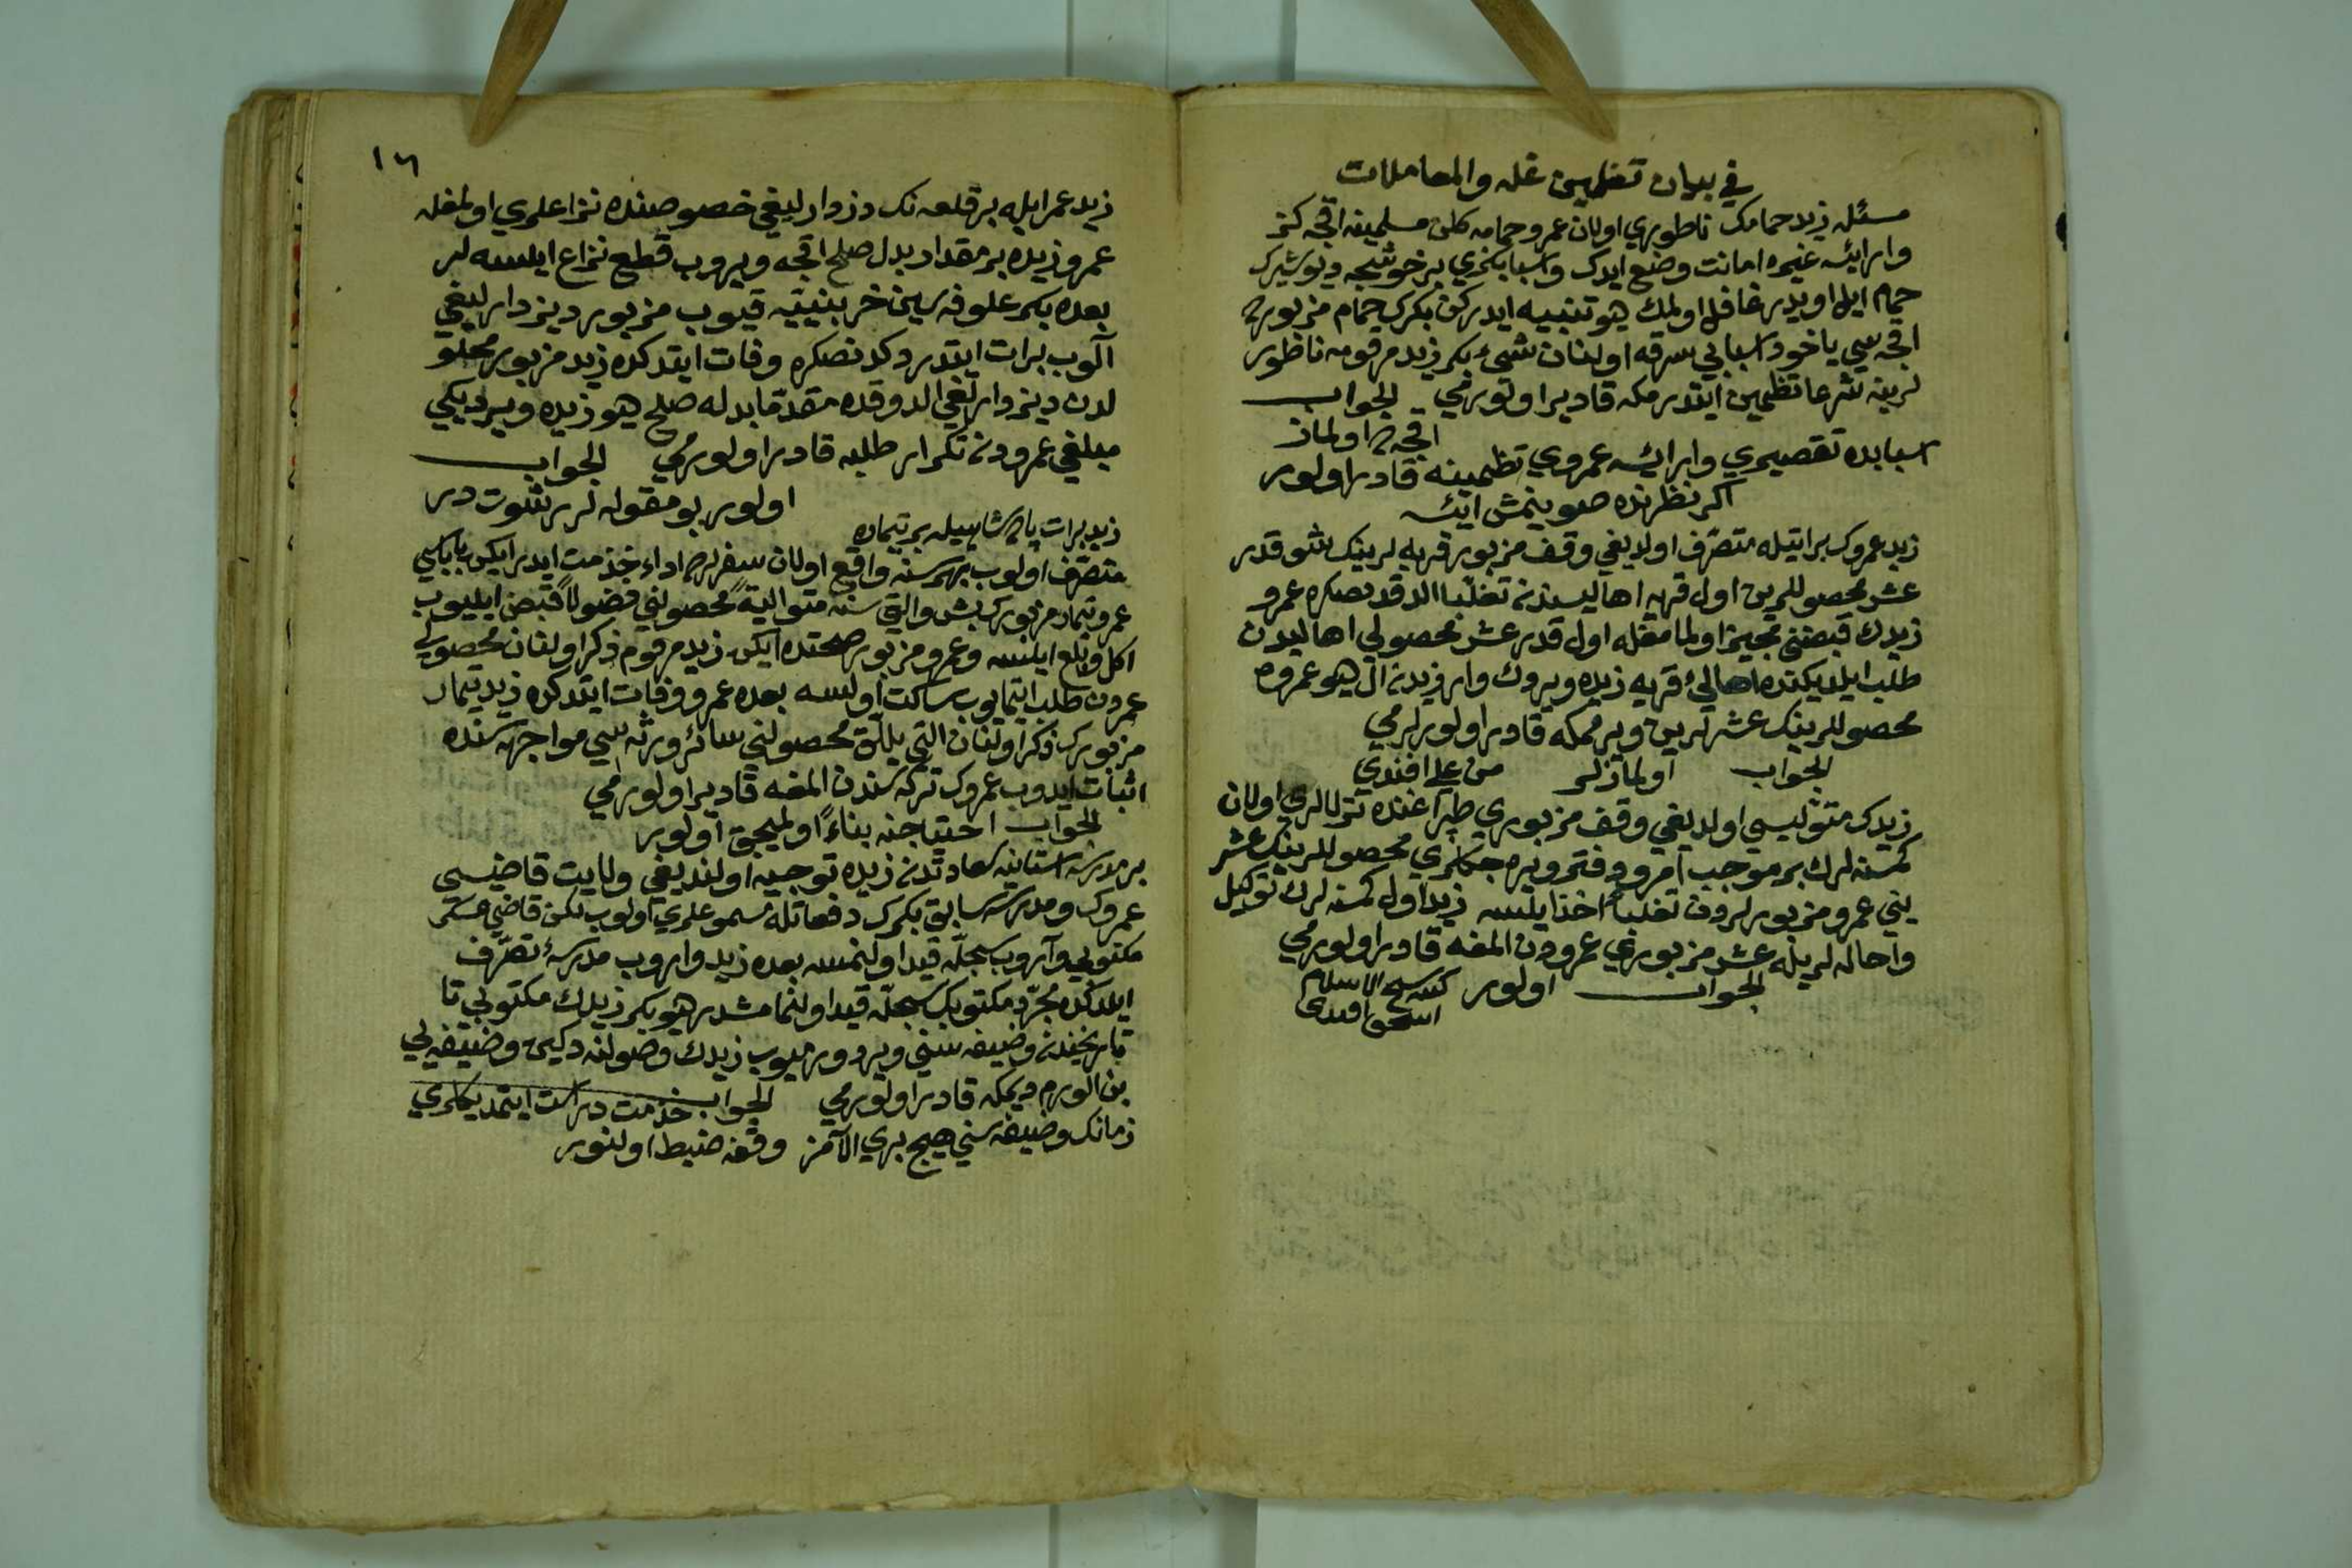 في بيان تضمين غله والمعاملات
مسئله زيد حمامك ناطوري اولان عمرو حمامه كلن مسلمينه اقچه كز
وار ايسه غيره امانت وضع ايدك واسبابكزي بر خوشجه ديوشيرك
حمام ايلر اويدر غافل اولمك ديو تنبيه ايدركن بكرك حمام مزبورده
اقچه سي ياخود اسبابي سرقه اولنان شيء بكر زيد مرقومه ناطور
لرينه شرعا تظمين ايتدرمكه قادير اولورمي الجواب
اقچه ده اولماز
اسبابده تقصيري وار ايسه عمروي تظمينه قادر اولور
اكر نظرنده صوينمش ايسه
زيد عمروك براتيله متصرف اولديغي وقف مزبور قريه لرينك شو قدر
عشر محصوللرين اول قريه اهاليسندن تغلبا الدقدنصكره عمرو
زيدك قبضني مجيز اولمامغله اول قدر عشر محصولي اهاليدن
طلب ايلديكنده اهالئ قريه زيده ويردك وار زيدن ال ديو عمروه
محصوللرينك عشرلرين ويرممكه قادر اولورلرمي
الجواب اولمازلر من علي افندي
زيدك متوليسي اولديغي وقف مزبوري طپراغنده ترلالري اولان
كمسنه لرك بر موجب امر و دفتر ويره جكلري محصوللرينك عشر
يني عمرو مزبورلردن تغلباً اخذ ايلسه زيد اول كمسنه لرك توكيل
واحاله لريله عشر مزبوري عمرودن المغه قادر اولورمي
الجواب اولور كتبه شيخ الاسلام
اسحق افندي
١٦
زيد عمر ايله بر قلعه نك دزدارليغي خصوصنده نزاعلري اولمغله
عمرو زيده بر مقدار بدل صلح اقچه ويروب قطع نزاع ايلسه لر
بعده بكر علوفه سين خزينيه قيوب مزبور ديزدارليغي
آلوب برات ايتدردكدنصكره وفات ايتدكده زيد مزبور محلو
لدن ديزدارلغي الدوقده مقدما بدله صلح ديو زيده ويرديكي
مبلغي عمرودن تكرار طلبه قادر اولورمي الجواب
اولور بو مقوله لر رشوت در
زيد برات پادشاهيله بر تيماره
متصرف اولوب بهر سنه واقع اولان سفرلره اداء خدمت ايدر ايكن باباسي
عمرو تيمار مزبورك بش والتي سنه متوالية محصولني فضولاً قبض ايليوب
اكل وبلع ايلسه وعمرو مزبور صحتده ايكن زيد مرقوم ذكر اولنان محصولي
عمرودن طلب ايتمايوب ساكت اولسه بعده عمرو وفات ايتدكده زيد تيمار
مزبورك ذكر اولنان التي ييللق محصولني سائر ورثه سي مواجهه سنده
اثبات ايدوب عمروك تركه سندن المغه قادير اولورمي
الجواب احتياجنه بناءً اولميجق اولور
بر مدرسه استانه سعادتدن زيده توجيه اولنديغي ولايت قاضيسي
عمروك ومدرس سابق بكرك دفعاتله مسموعلري اولوب لكن قاضي عسكر
مكتوبي واروب سجله قيد اولنمسه بعده زيد واروب مدرسه ئ تصرف
ايلدكده مجرد مكتوبك سجله قيد اولنمامشدر ديو بكر زيدك مكتوبي تا
تاريخندن وضيفه سني ويرو ورميوب زيدك وصولنه دكين وضيفه يي
بن الورم ديمكه قادر اولورمي الجواب خدمت دراست ايتمديكلري
زمانك وضيفه سني هيچ بري الآمز وقفه ضبط اولنور